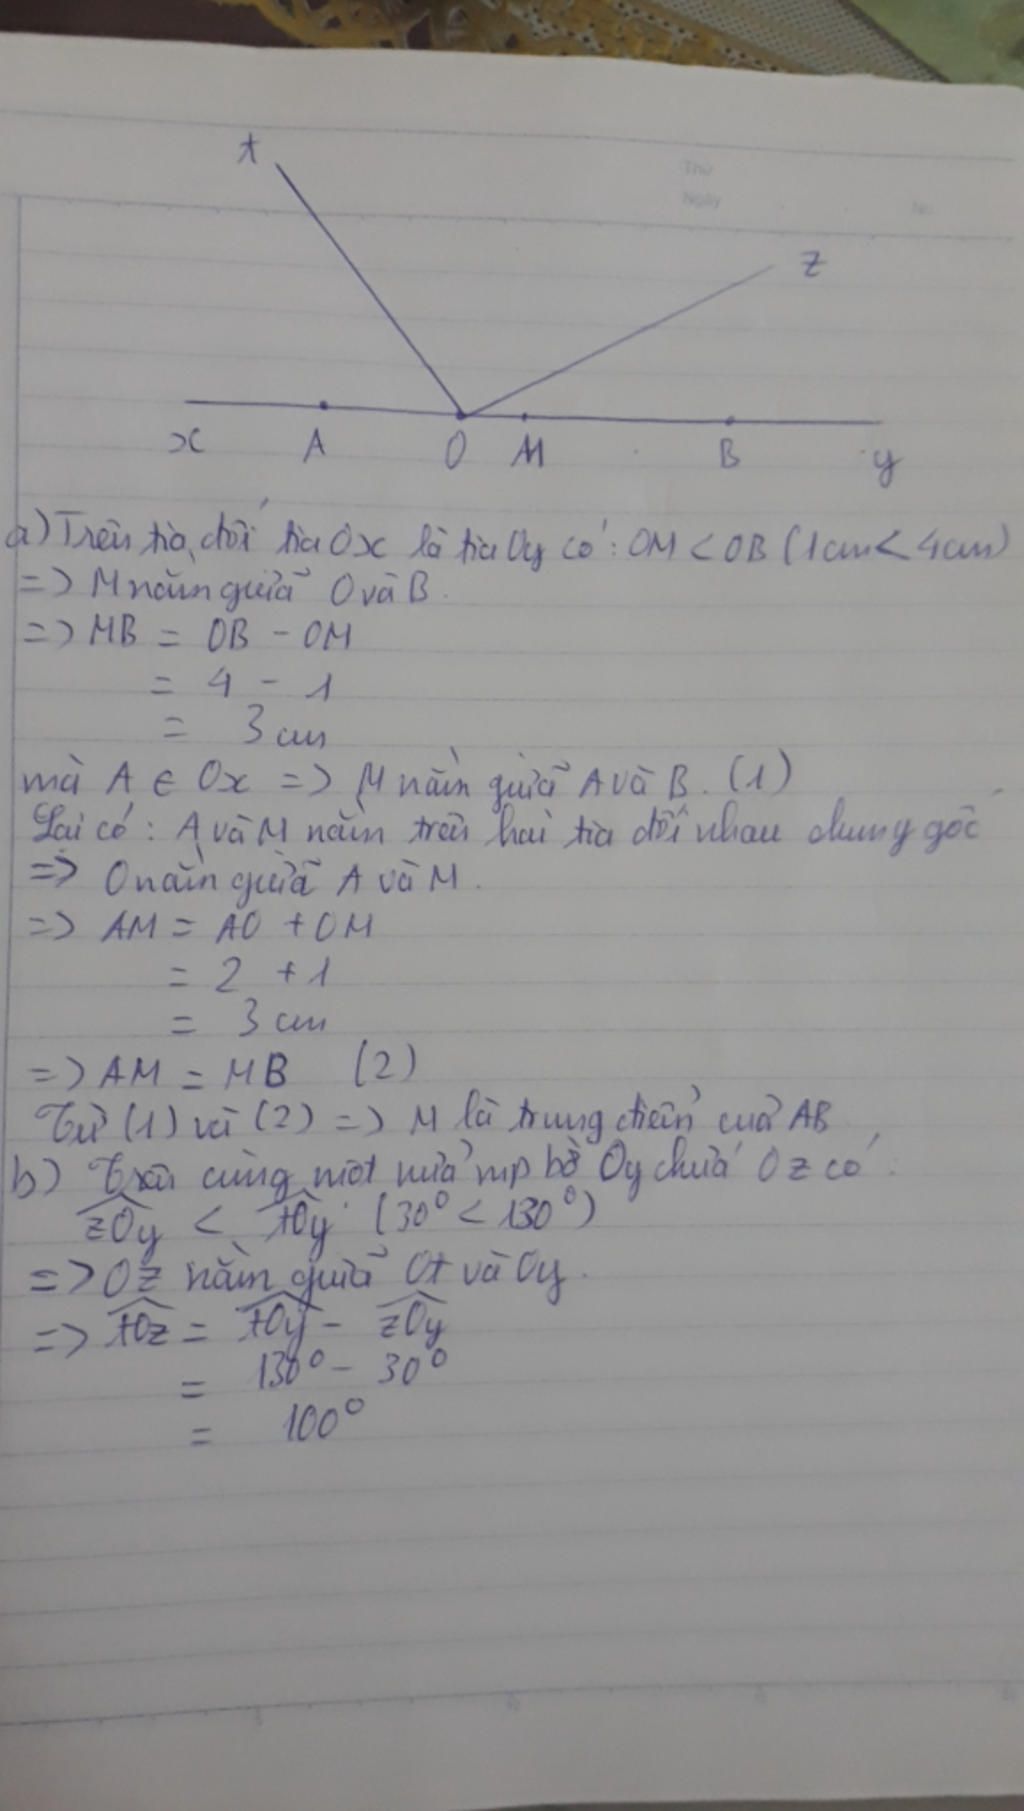 t
Thứ
Ngày
No.
z
x A O M B y
a) Trên tia đối tia Ox là tia Oy có: OM < OB (1cm < 4cm)
=> M nằm giữa O và B.
=> MB = OB - OM
= 4 - 1
= 3 cm
mà A ∈ Ox => M nằm giữa A và B. (1)
Lại có: A và M nằm trên hai tia đối nhau chung gốc
=> O nằm giữa A và M.
=> AM = AO + OM
= 2 + 1
= 3 cm
=> AM = MB (2)
Từ (1) và (2) => M là trung điểm của AB
b) Trên cùng một nửa mp bờ Oy chứa Oz có:
zOy < tOy (30° < 130°)
=> Oz nằm giữa Ot và Oy.
=> tOz = tOy - zOy
= 130° - 30°
= 100°